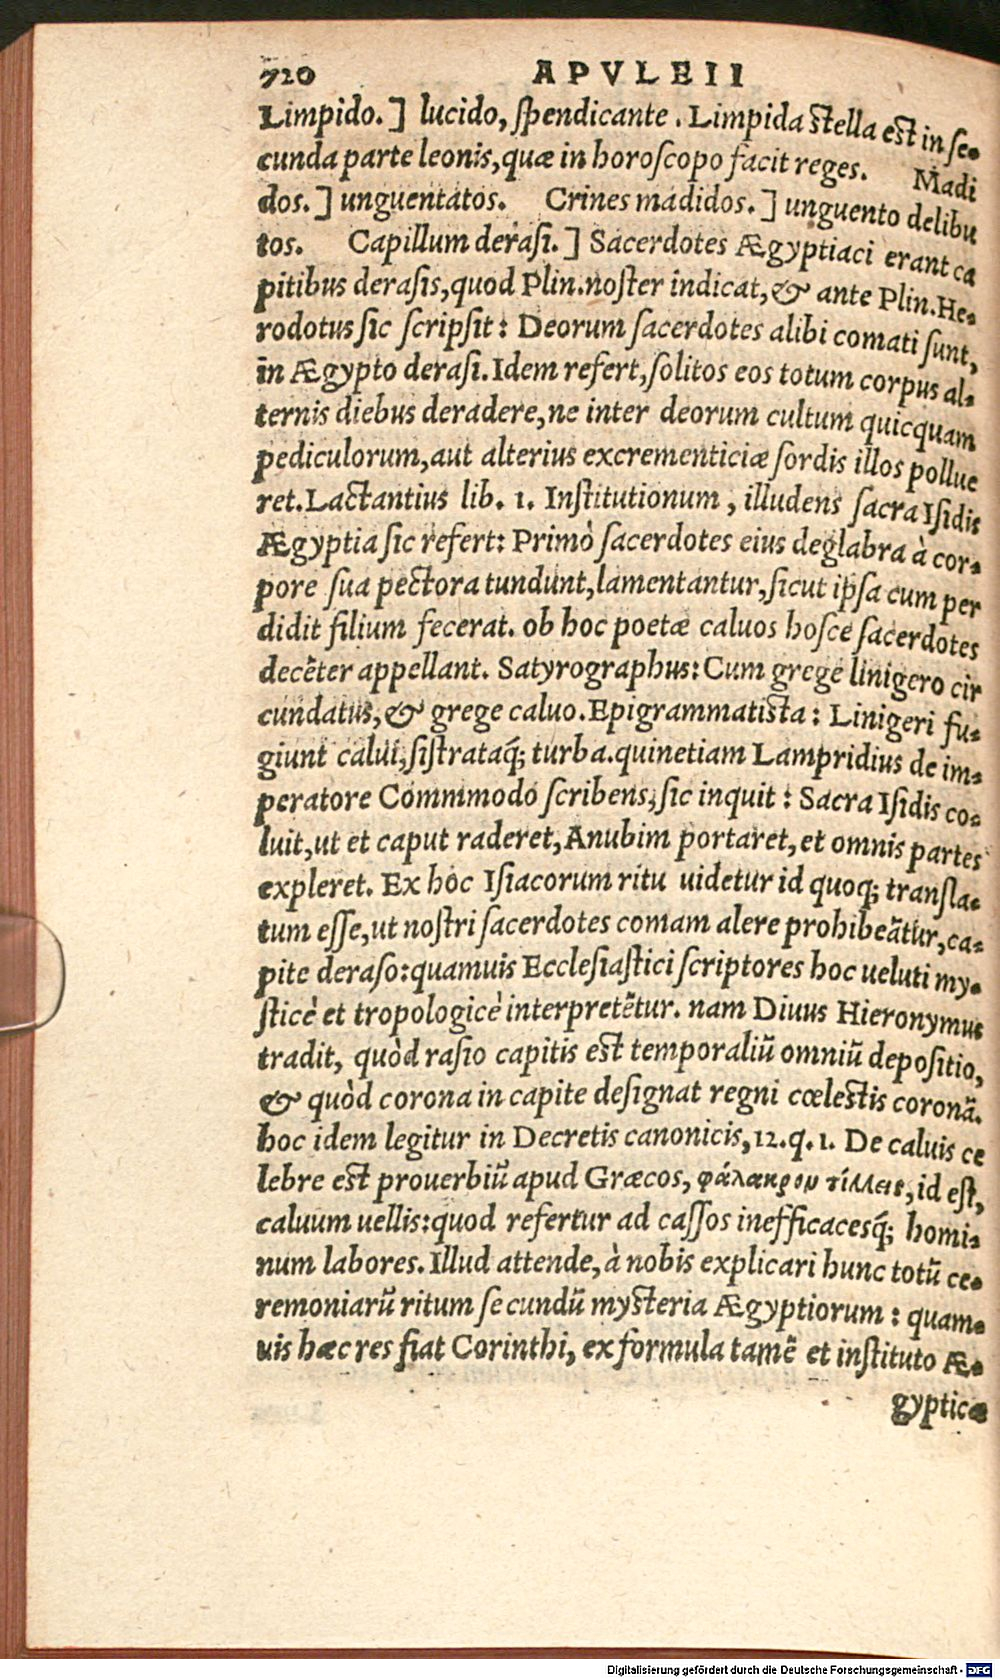 720 APVLEII
Limpido.] lucido, spendicante. Limpida stella est in se-
cunda parte leonis, quæ in horoscopo facit reges. Madi
dos.] unguentatos. Crines madidos.] unguento delibu
tos. Capillum derasi.] Sacerdotes Ægyptiaci erant ca
pitibus derasis, quod Plin. noster indicat, & ante Plin. He-
rodotus sic scripsit: Deorum sacerdotes alibi comati sunt,
in Ægypto derasi. Idem refert, solitos eos totum corpus al-
ternis diebus deradere, ne inter deorum cultum quicquam
pediculorum, aut alterius excrementiciæ sordis illos pollue
ret. Lactantius lib. 1. Institutionum, illudens sacra Isidis
Ægyptia sic refert: Primò sacerdotes eius deglabra à cor-
pore sua pectora tundunt, lamentantur, sicut ipsa cum per
didit filium fecerat. ob hoc poetæ caluos hosce sacerdotes
decẽter appellant. Satyrographus: Cum grege linigero cir
cundatus, & grege caluo. Epigrammatista: Linigeri fu-
giunt calui, sistrataq́; turba. quinetiam Lampridius de im-
peratore Commodo scribens, sic inquit: Sacra Isidis co-
luit, ut et caput raderet, Anubim portaret, et omnis partes
expleret. Ex hoc Isiacorum ritu uidetur id quoq; transla-
tum esse, ut nostri sacerdotes comam alere prohibeãtur, ca-
pite deraso: quamuis Ecclesiastici scriptores hoc ueluti my-
sticè et tropologicè interpretẽtur. nam Diuus Hieronymus
tradit, quòd rasio capitis est temporaliũ omniũ depositio,
& quòd corona in capite designat regni cœlestis coronã.
hoc idem legitur in Decretis canonicis, 12. q. 1. De caluis ce
lebre est prouerbiũ apud Græcos, φάλακρον τίλλεις, id est,
caluum uellis: quod refertur ad cassos inefficacesq́; homi-
num labores. Illud attende, à nobis explicari hunc totũ ce-
remoniarũ ritum secundũ mysteria Ægyptiorum: quam-
uis hæc res fiat Corinthi, ex formula tamẽ et instituto Æ-
gypticæ
Digitalisierung gefördert durch die Deutsche Forschungsgemeinschaft - DFG